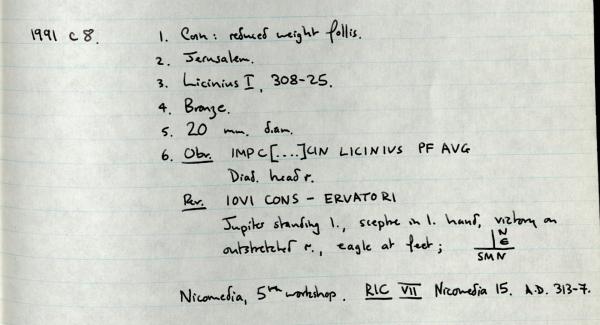 1991 c 8. 1. Coin: reduced weight follis.
2. Jerusalem.
3. Licinius I, 308-25.
4. Bronze.
5. 20 mm. diam.
6. Obv. IMP C [....] CIN LICINIUS PF AVG
Diad. head r.
Rev. IOVI CONS - ERVATORI
Jupiter standing l., sceptre in l. hand, victory on
outstretched r., eagle at feet; N
Є
SMN
Nicomedia, 5th workshop. RIC VII Nicomedia 15. A.D. 313-7.